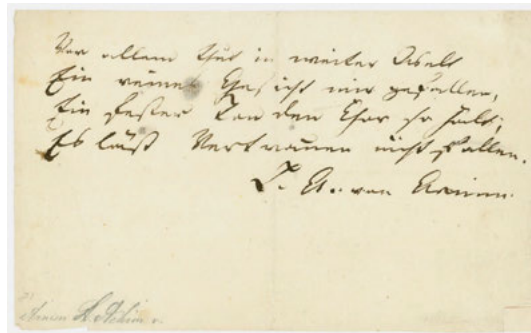 Vor allem thut in weiter Welt
Ein reines Gesicht mir gefallen,
Ein fester Ton den Chor so hält,
Es läßt Vertrauen nicht fallen.
L. A. von Arnim.
Arnim L. Achim v.